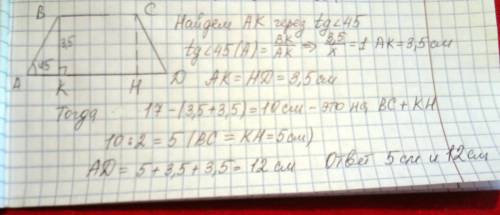 B C Найдем АК через tg∠45
3,5 tg∠45 (А) = BK/AK ⇒ 3,5/x = 1 АК = 3,5 см
A 45 K H D АК = HD = 3,5 см
Тогда 17 - (3,5+3,5) = 10 см - это на BC + KH
10:2 = 5 (BC = KH = 5 см)
AD = 5 + 3,5 + 3,5 = 12 см Ответ 5 см и 12 см